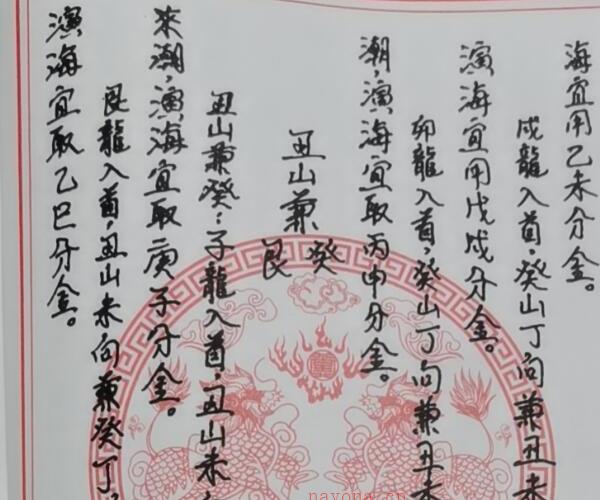 海宜用乙未分金。
戌龍入首，癸山丁向兼丑未
演海宜用戊戌分金。
卯龍入首，癸山丁向兼丑未
潮，演海宜取丙申分金。
丑山兼癸艮
丑山兼癸：子龍入首，丑山未
來潮，演海宜取庚子分金。
艮龍入首，丑山未向兼癸丁
演海宜取乙巳分金。